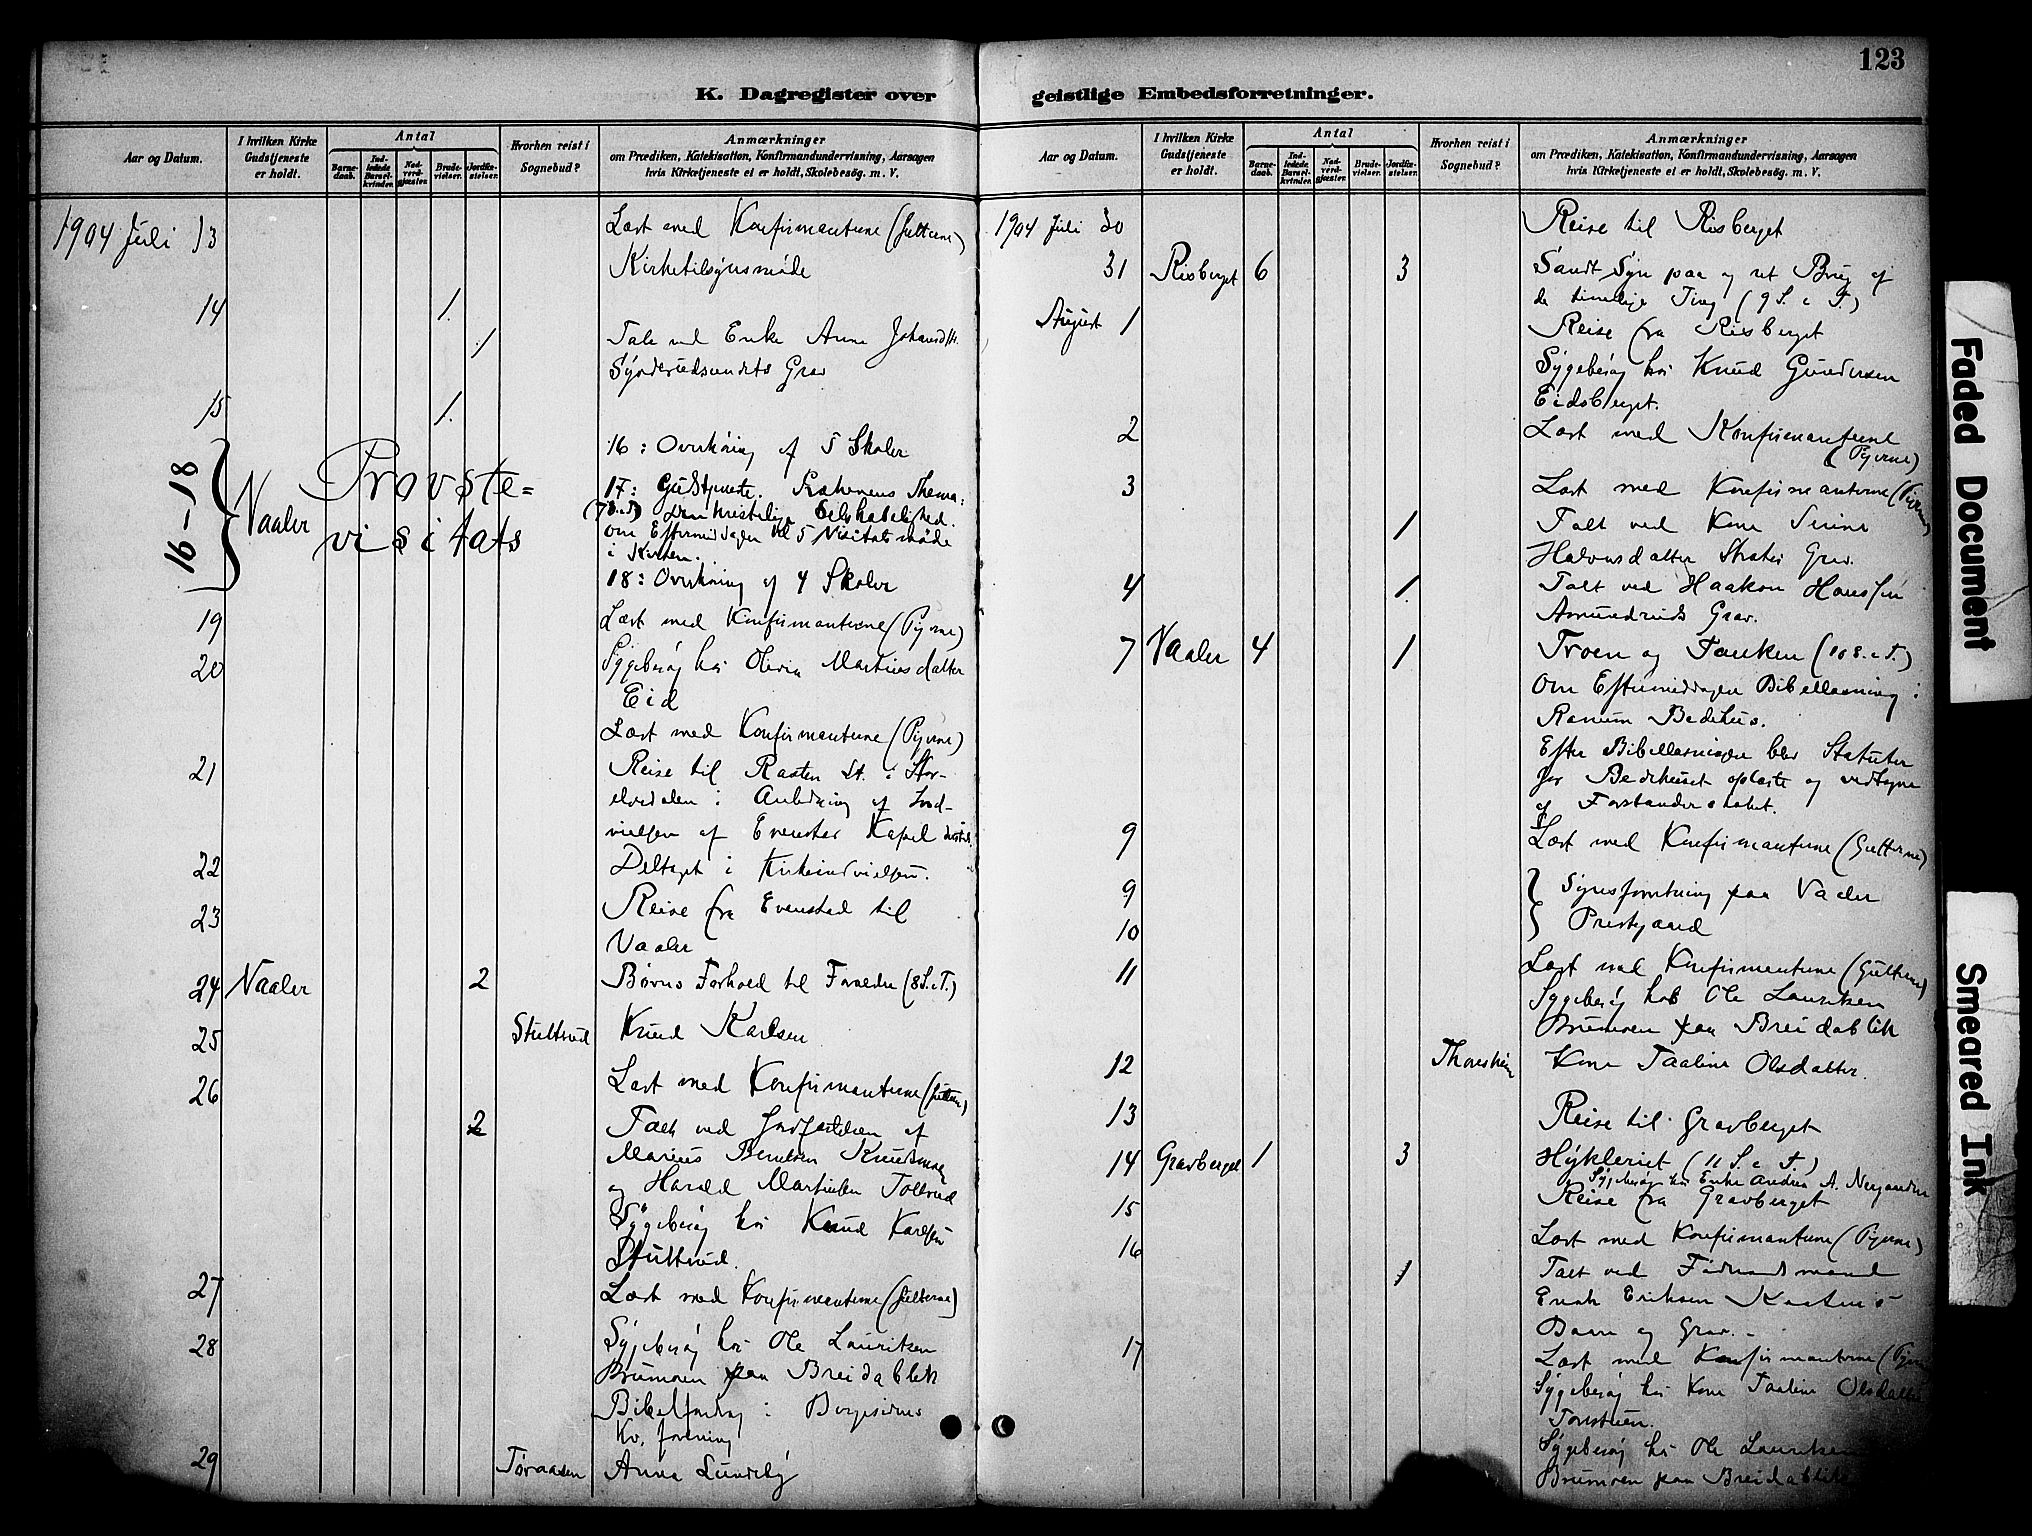 123
K. Dagregister over geistlige Embedsforretninger.
Aar og Datum.
I hvilken Kirke Gudstjeneste er holdt.
Antal
Barnedaab.
Indledede Barselkvinder.
Nadverdgjæster.
Brudevielser.
Jordfæstelser.
Hvorhen reist i Sognebud?
Anmærkninger
om Prædiken, Katekisation, Konfirmandundervisning, Aarsagen
hvis Kirketjeneste ei er holdt, Skolebesøg. m. V.
1904 Juli 13 Læst med Konfirmanterne (Gutterne)
Kirketilsynsmøde
14 1.
1 Tale ved Enke Anne Johansdtr.
Grav
15 1.
16-18 Vaaler Provste-
visitats
16: Overhøring af 5 Skoler
17: Gudstjeneste. Thema:
Den kristelige
om Eftermiddagen Kl 5 Visitatsmøde
i Kirken.
18: Overhøring af 4 Skoler
19 Læst med Konfirmanterne (Pigerne)
20 Sygebesøg hos Olivia Martinusdatter
Eid
Læst med Konfirmanterne (Pigerne)
21 Reise til Rasten St. i Stor-
elvedalen i Anledning af Ind-
vielsen af Evenstad Kapel
22 Deltaget i Kirkeindvielsen.
23 Reise fra Evenstad til
Vaaler
24 Vaaler 2 Børns Forhold til Forældre (8 S. e. T.)
25 Stultrud Knud Karlsen
26 Læst med Konfirmanterne (Gutterne)
2 Talt ved Jordfæstelsen af
Marius Berntsen
og Harald Martinsen
Sygebesøg hos Knud Karlsen
Stultrud.
27 Læst med Konfirmanterne (Gutterne)
28 Sygebesøg hos Ole Lauritsen
Brumoen paa Breidablik
i
Kv. forening
29 Toraasen Anna Lundeby
Aar og Datum.
I hvilken Kirke Gudstjeneste er holdt.
Antal
Barnedaab.
Indledede Barselkvinder.
Nadverdgjæster.
Brudevielser.
Jordfæstelser.
Hvorhen reist i Sognebud?
Anmærkninger
om Prædiken, Katekisation, Konfirmandundervisning, Aarsagen
hvis Kirketjeneste ei er holdt, Skolebesøg. m. V.
1904 Juli 30 Reise til Risberget
31 Risberget 6 3 Sandt Syn paa og ret Brug af
de timelige Ting (9 S. e. T.)
August 1 Reise fra Risberget
Sygebesøg hos Knud Gundersen
Eidsberget.
2 Læst med Konfirmanterne
(Pigerne)
3 Læst med Konfirmanterne (Pigerne)
1 Talt ved Kone
Halvorsdatter Grav.
4 1 Talt ved Haakon Hanssen
Amundruds Grav.
7 Vaaler 4 1 Troen og Tanken (10 S. e. T.)
Om Eftermiddagen Bibellæsning i
Ranum Bedehus.
Efter Bibellæsningen blev Statuter
for Bedehuset oplæste og vedtagne
af Forstanderskabet.
9 Læst med Konfirmanterne (Gutterne)
9 Synsforretning paa Vaaler
10 Prestgaard
11 Læst med Konfirmanterne (Gutterne)
Sygebesøg hos Ole Lauritsen
Brumoen paa Breidablik
12 Kone Taaline Olsdatter.
13 Reise til Gravberget
14 Gravberget 1 3 Hykleriet (11 S. e. T.)
Sygebesøg hos Enke Andrea A.
15 Reise fra Gravberget
16 Læst med Konfirmanterne (Pigerne)
1 Talt ved
Eriksen
Baare og Grav.
17 Læst med Konfirmanterne
Sygebesøg hos Kone Taaline Olsdatter
Sygebesøg hos Ole Lauritsen
Brumoen paa Breidablik
Faded Document
Smeared Ink